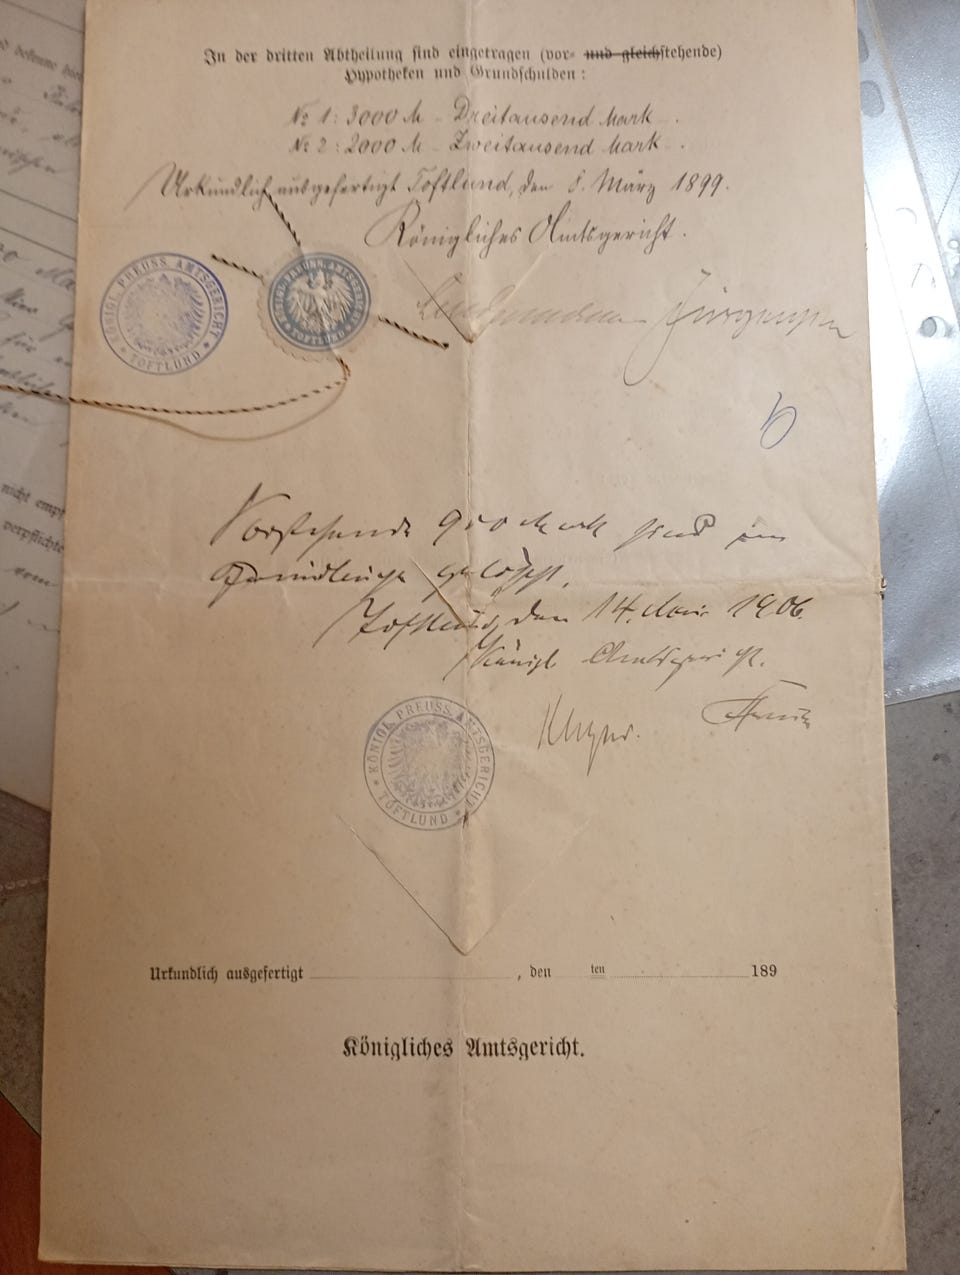 In der dritten Abtheilung sind eingetragen (vor- und gleichstehende)
Hypotheken und Grundschulden:
No 1: 3000 M - Dreitausend Mark.
No 2: 2000 M - Zweitausend Mark.
Urkundlich ausgefertigt Toftlund, den 8. März 1899.
Königliches Amtsgericht.
KÖNIGL. PREUSS. AMTSGERICHT * TOFTLUND *
KÖNIGL. PREUSS. AMTSGERICHT * TOFTLUND *
Vorstehende 900 Mark sind im
Grundbuche gelöscht.
Toftlund, den 14. Mai 1906.
Königl. Amtsgericht.
KÖNIGL. PREUSS. AMTSGERICHT * TOFTLUND *
Urkundlich ausgefertigt , den ten 189
Königliches Amtsgericht.
nicht empf
verpflichte